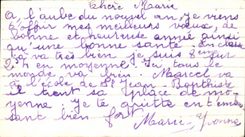 Chère Marie
A l'aube du nouvel an je viens
t'offrir mes meilleurs vœux de
bonne et heureuse année ainsi
qu'une bonne santé. en classe
sa va très bien je suis 8e sur
en moyenne. Ici tous le
monde va bien. Marcel va
a l'école de St Jean Baptiste
il est place en me
yenne. je te quitte en t'em
brassant bien fort
Marie Yvonne